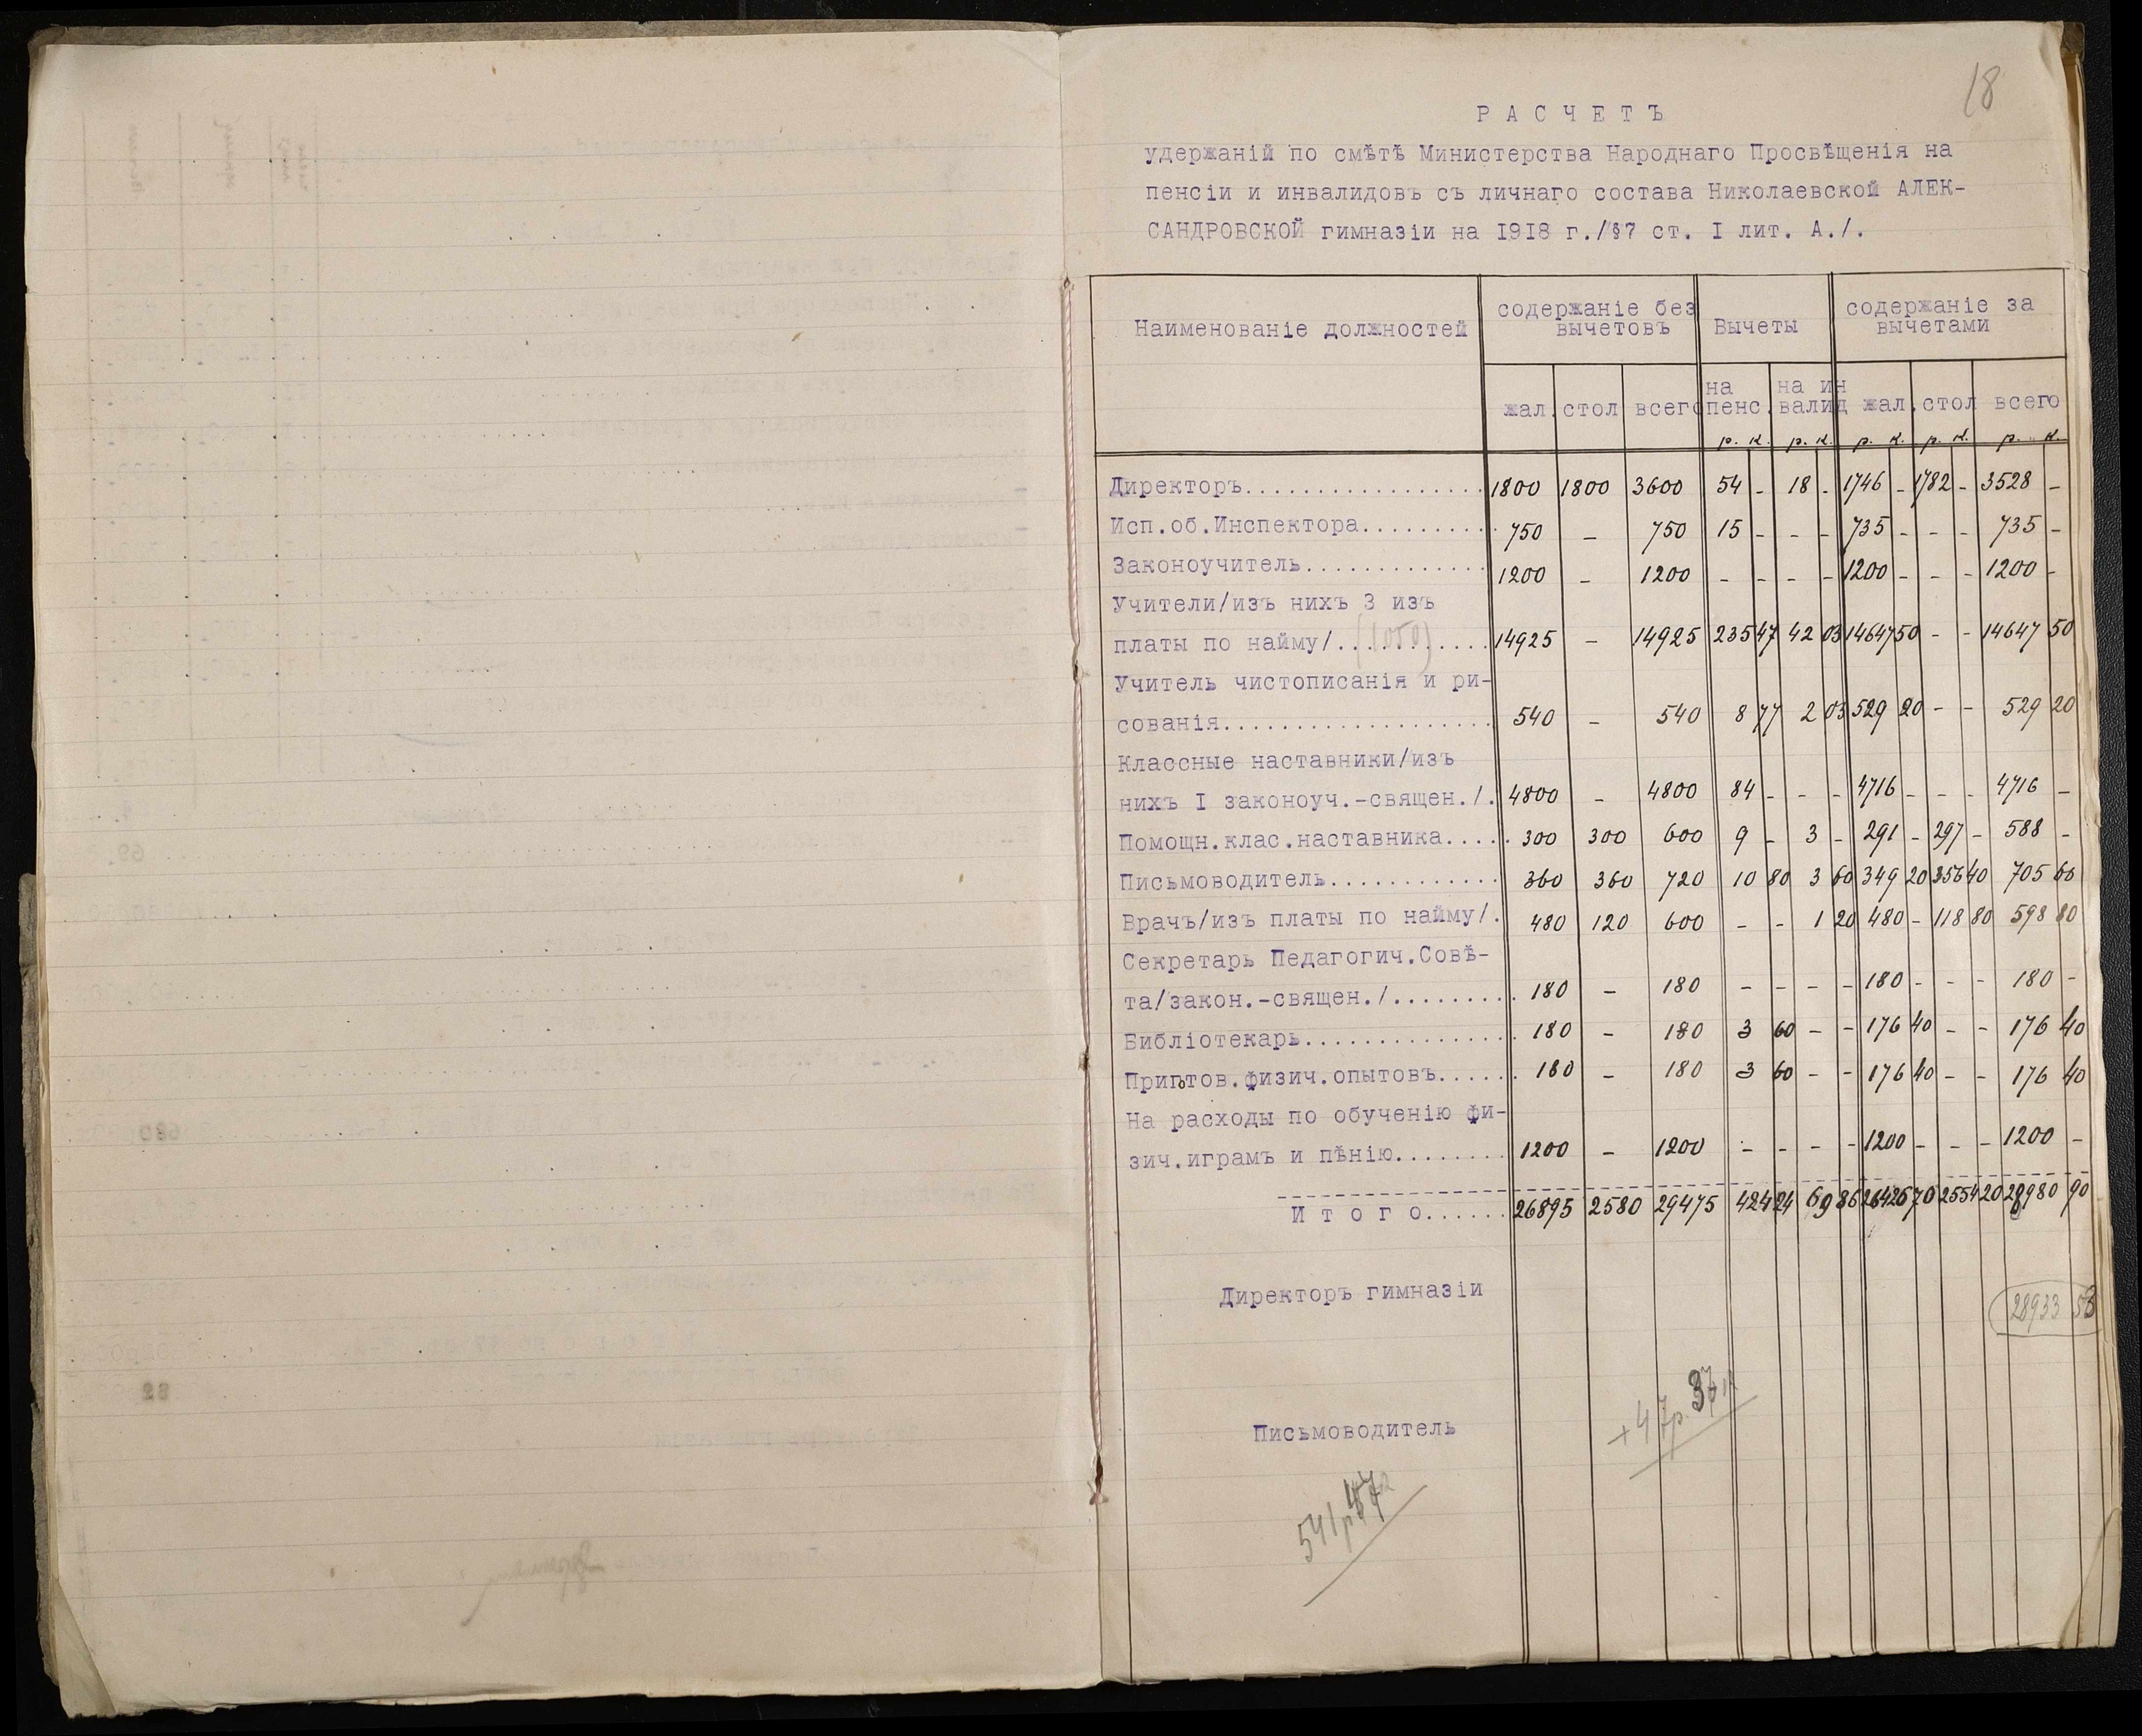 18
Р А С Ч Е Т Ъ
удержаній по смѣтѣ Министерства Народнаго Просвѣщенія на
пенсіи и инвалидовъ съ личнаго состава Николаевской АЛЕК-
САНДРОВСКОЙ гимназіи на 1918 г./§7 ст. I лит. А./.
Наименованіе должностей содержаніе без вычетовъ Вычеты содержаніе за вычетами
жал. стол всего на пенс. на ин валид жал. стол всего
р. к. р. к. р. к. р. к. р. к.
Директоръ................. 1800 1800 3600 54 - 18 - 1746 - 1782 - 3528 -
Исп.об.Инспектора.......... 750 - 750 15 - - - 735 - - - 735 -
Законоучитель............. 1200 - 1200 - - - - 1200 - - - 1200 -
Учители/изъ нихъ 3 изъ
платы по найму/........... (1050) 14925 - 14925 235 47 42 03 14647 50 - - 14647 50
Учитель чистописанія и ри-
сованія................... 540 - 540 8 77 2 03 529 20 - - 529 20
Классные наставники/изъ
нихъ I законоуч.-священ./. 4800 - 4800 84 - - - 4716 - - - 4716 -
Помощн.клас.наставника..... 300 300 600 9 - 3 - 291 - 297 - 588 -
Письмоводитель............ 360 360 720 10 80 3 60 349 20 356 40 705 60
Врачъ/изъ платы по найму/. 480 120 600 - - 1 20 480 - 118 80 598 80
Секретарь Педагогич.Совѣ-
та/закон.-священ./......... 180 - 180 - - - - 180 - - - 180 -
Библіотекарь............... 180 - 180 3 60 - - 176 40 - - 176 40
Приготов.физич.опытовъ...... 180 - 180 3 60 - - 176 40 - - 176 40
На расходы по обученію фи-
зич.играмъ и пѣнію........ 1200 - 1200 - - - - 1200 - - - 1200 -
И т о г о...... 26895 2580 29475 424 24 69 86 26426 70 2554 20 28980 90
Директоръ гимназіи
28933 53
+47р.
Письмоводитель
541р